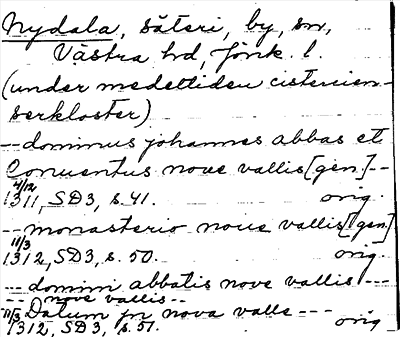 Nydala, säteri, by, sn,
Västra hd, Jönk. l.
(under medeltiden cistercien-
serkloster)
-- dominus johannes abbas et
Conuentus noue vallis [gen] --
4/12
1311, SD3, s. 41. orig.
-- monasterio noue vallis [gen]
11/3
1312, SD3, s. 50. orig.
--- domini abbatis nove vallis ---
-- nove vallis --
11/3 Datum jn nova valle ---
1312, SD3, s. 51. orig